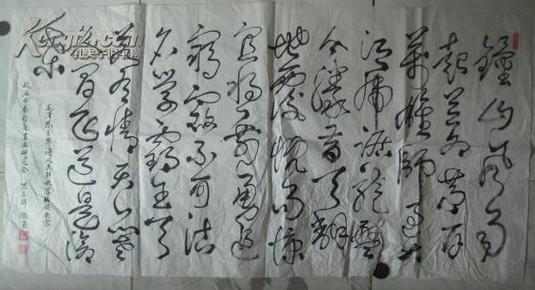 鍾山風雨
起蒼黄百
萬雄師過大
江虎踞龍盤
今勝昔天翻
地覆慨而慷
宜将剩勇追
窮寇不可沽
名學霸王天
若有情天亦老
人間正道是滄
桑
毛澤東主席詩人民解放軍佔領南京